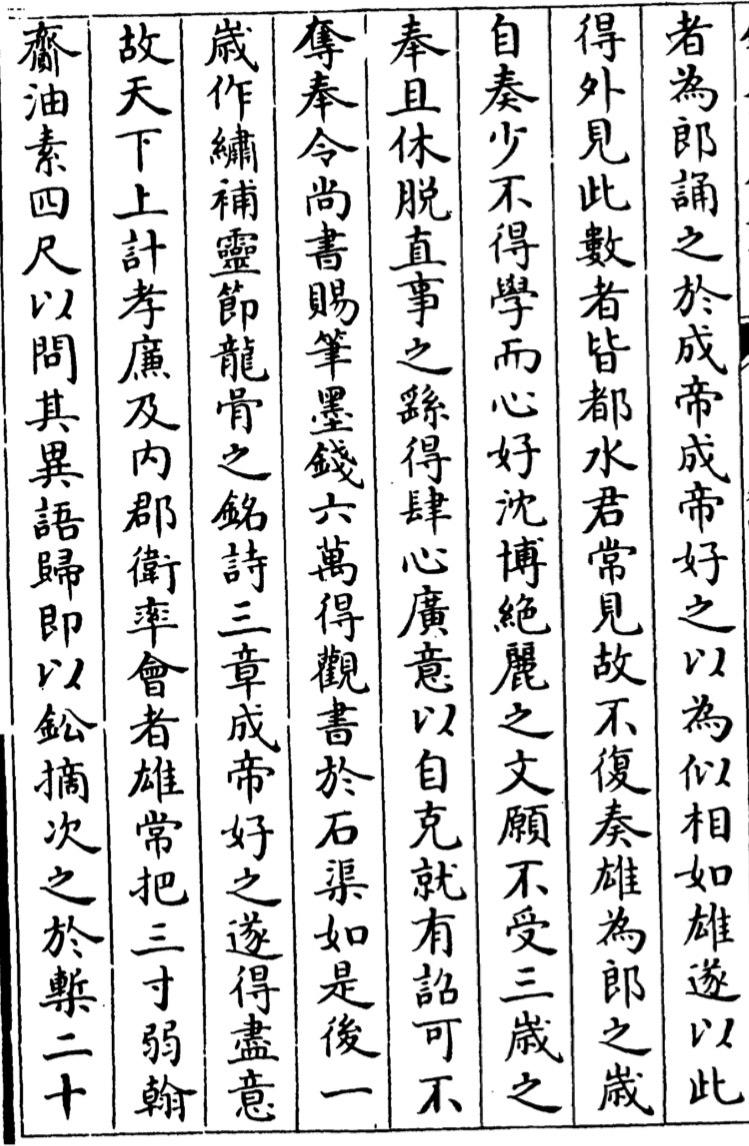 者為郎誦之於成帝成帝好之以為似相如雄遂以此
得外見此數者皆都水君常見故不復奏雄為郎之歲
自奏少不得學而心好沈博絕麗之文願不受三歲之
奉且休脱直事之繇得肆心廣意以自克就有詔可不
奪奉令尚書賜筆墨錢六萬得觀書於石渠如是後一
歲作繡補靈節龍骨之銘詩三章成帝好之遂得盡意
故天下上計孝廉及内郡衛率會者雄常把三寸弱翰
齎油素四尺以問其異語歸即以鈆摘次之於槧二十